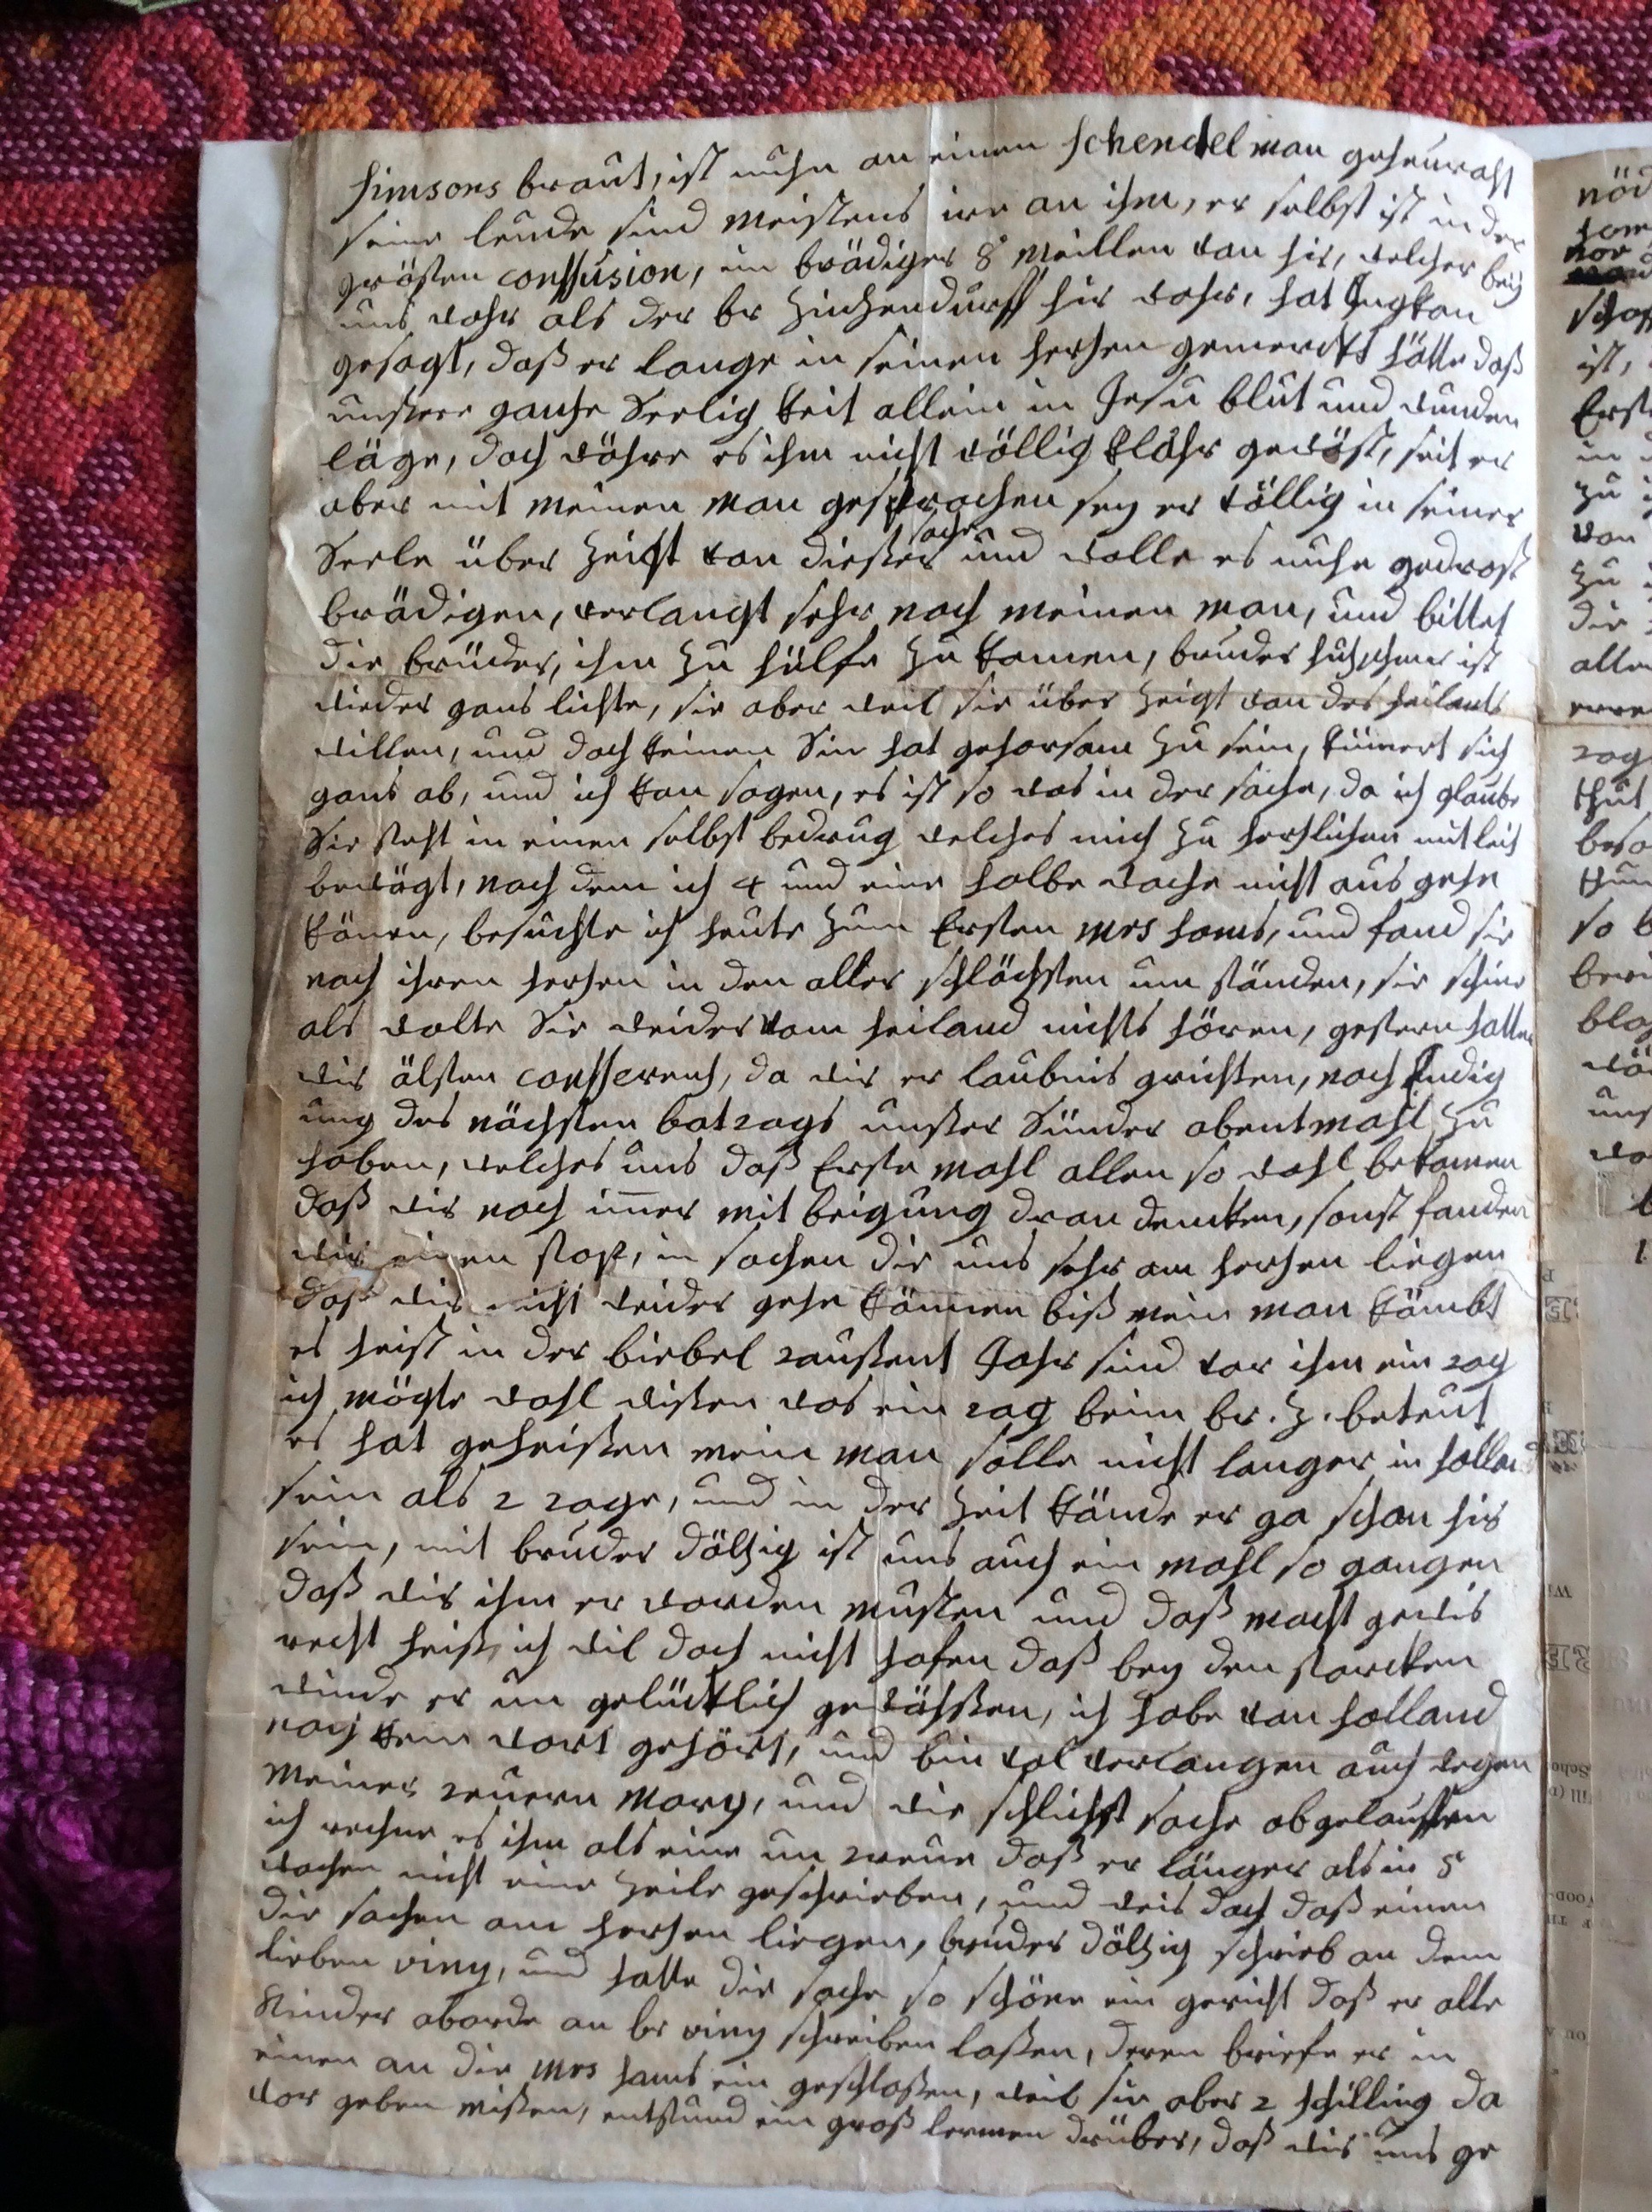 simsons braut, ist nuhn an einen schendelman geheuraht
seine leude sind meistens irr an ihm, er selbst ist in der
grösten conffusion, ein brädiger 8 meillen von hir, welcher bey
uns wahr als der br Zinzendurff hir wahr, hat
gesagt, daß er lange in seinen herzen gemerckt hätte daß
unßere ganze Seeligkeit allein in Jesu blut und wunden
läge, doch wöhre es ihm nicht völlig klahr gewöst, seit er
aber mit meinen man gesprochen sey er völlig in seiner
Seele über zeigt von dießer sache und wolle es nuhn gedrost
brädigen, verlangt sehr nach meinen man, und bittet
die brüder, ihm zu hülfe zu komen, bruder ist
wieder gans lichte, sie aber weil sie über zeigt von des heilants
willen, und doch keinen Sin hat gehorsam zu sein, kümert sich
gans ab, und ich kan sagen, es ist so was in der sache, da ich glaube
Sie steht in einen selbst bedrug welches mich zu herzlichen mitleid
bewögt, nach dem ich 4 und eine halbe woche nicht aus gehe
könen, besuchte ich heute zum Ersten mrs hams, und fand sie
nach ihren herzen in den aller schlöchsten um ständen, sie schine
als wolte Sie weider vom heiland nichts hören, gestern hatten
wir älsten confferenz, da wir er laubnis grichten, noch
ung des nächsten batzags unßer Sünder abentmahl zu
haben, welches uns daß Erste mahl allen so wohl bekomen
daß wir noch imer mit beigung dran dencken, sonst fanden
wir einen stoß, in sachen die uns sehr am herzen liegen
daß wir nicht weider gehe können biß mein man kömbt
es heist in der biebel zaußent Jahr sind vor ihm ein zag
ich mögte wohl wißen was ein zag beim br. Z. beteut
es hat geheißen mein man solle nicht langer in holland
sein als 2 zage, und in der zeit könde er ga schon hir
sein, mit bruder döltzig ist uns auch ein mahl so gangen
daß wir ihm er warden musten und daß macht gewis
recht heiß, ich wil doch nicht hofen daß bey den starcken
winde er un gelücklich gewößßen, ich habe von holland
noch kein wort gehört, und bin vol verlangen auch wegen
meiner zeuern mary, und wie schlichst sache abgelauffen
ich rechne es ihm als eine un zreue daß er länger als in 5
wochen nicht eine zeile geschrieben, und weis doch daß einen
die sachen am herzen liegen, bruder döltzig schrieb an dem
lieben viny, und hatte die sache so schöne ein gericht daß er alle
Kinder aborde an br viny schreiben laßen, deren briefe er in
einen an die mrs hams ein geschloßen, weil sie aber 2 schilling da
vor geben mißen, entstund ein groß lermen drüber, daß wir uns ge